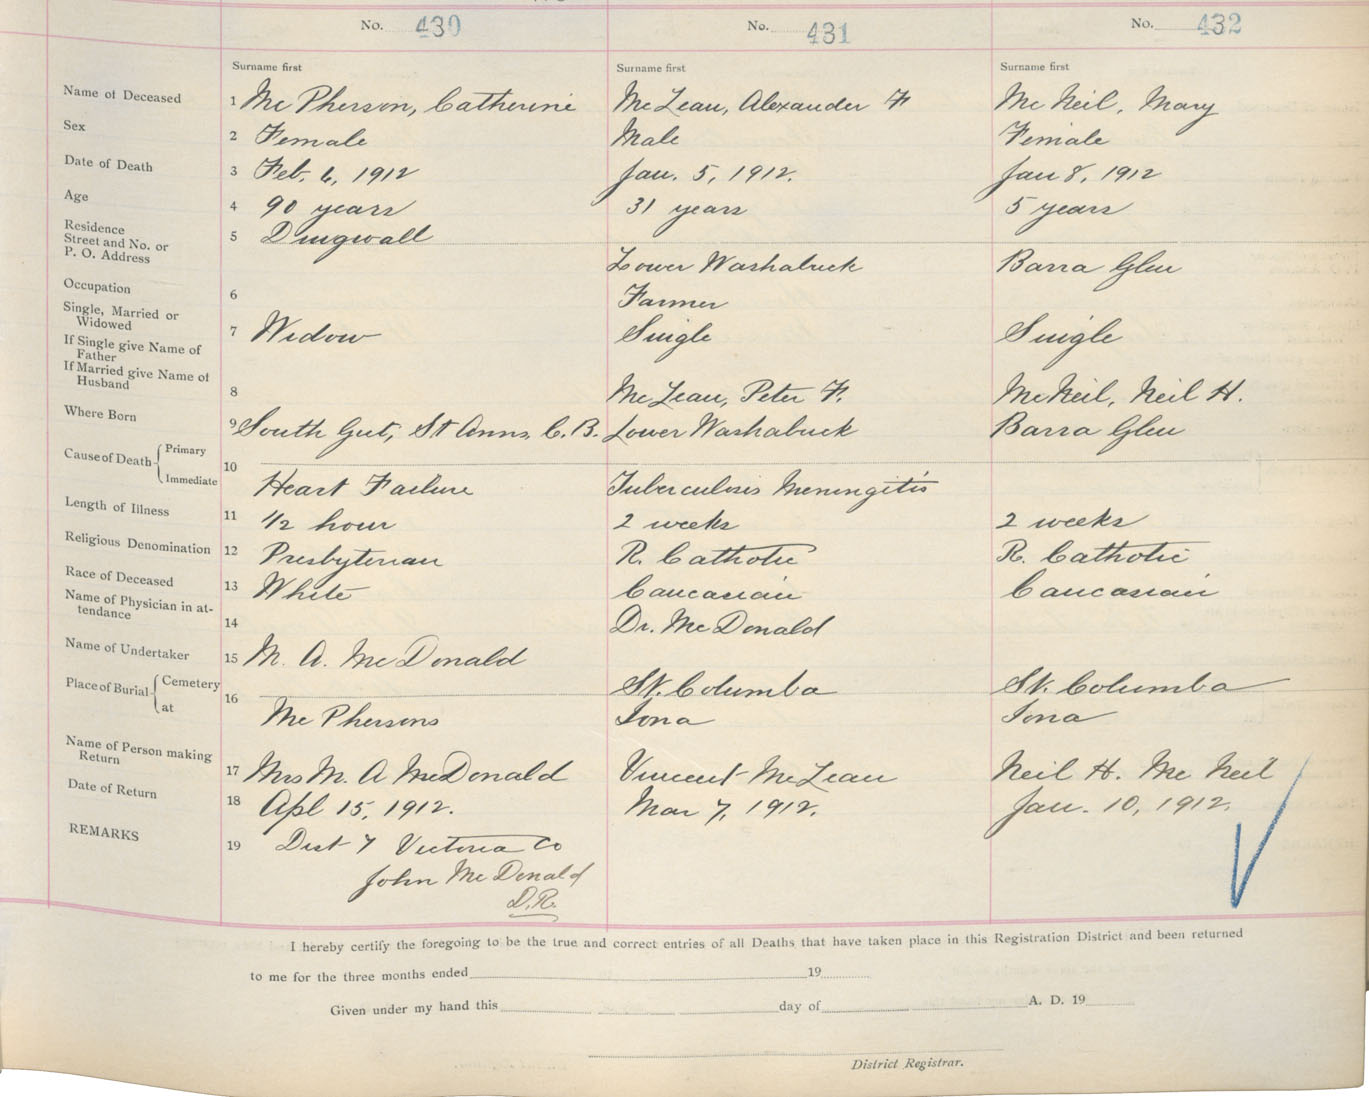 No. 430 No. 431 No. 432
Surname first Surname first Surname first
Name of Deceased 1 McPherson, Catherine McLean, Alexander F McNeil, Mary
Sex 2 Female Male Female
Date of Death 3 Feb. 6, 1912 Jan. 5, 1912. Jan 8, 1912
Age 4 90 years 31 years 5 years
Residence
Street and No. or 5 Dingwall
P. O. Address Lower Washabuck Barra Glen
Occupation 6 Farmer
Single, Married or
Widowed 7 Widow Single Single
If Single give Name of
Father
If Married give Name of
Husband 8 McLean, Peter F. McNeil, Neil H.
Where Born 9 South Gut, St Anns, C. B. Lower Washabuck Barra Glen
Cause of Death Primary
10
Immediate Heart Failure Tuberculosis Meningitis
Length of Illness 11 1/2 hour 2 weeks 2 weeks
Religious Denomination 12 Presbyterian R. Catholic R. Catholic
Race of Deceased 13 White Caucasian Caucasian
Name of Physician in at-
tendance 14 Dr. McDonald
Name of Undertaker 15 M. A. McDonald
Place of Burial Cemetery St. Columba St. Columba
16
at McPhersons Iona Iona
Name of Person making
Return 17 Mrs M. A McDonald Vincent McLean Neil H. McNeil
Date of Return 18 Apl 15, 1912. Mar 7, 1912. Jan. 10, 1912.
REMARKS 19 Dist 7 Victoria Co
John McDonald
D.R.
I hereby certify the foregoing to be the true and correct entries of all Deaths that have taken place in this Registration District and been returned
to me for the three months ended 19
Given under my hand this day of A. D. 19
District Registrar.